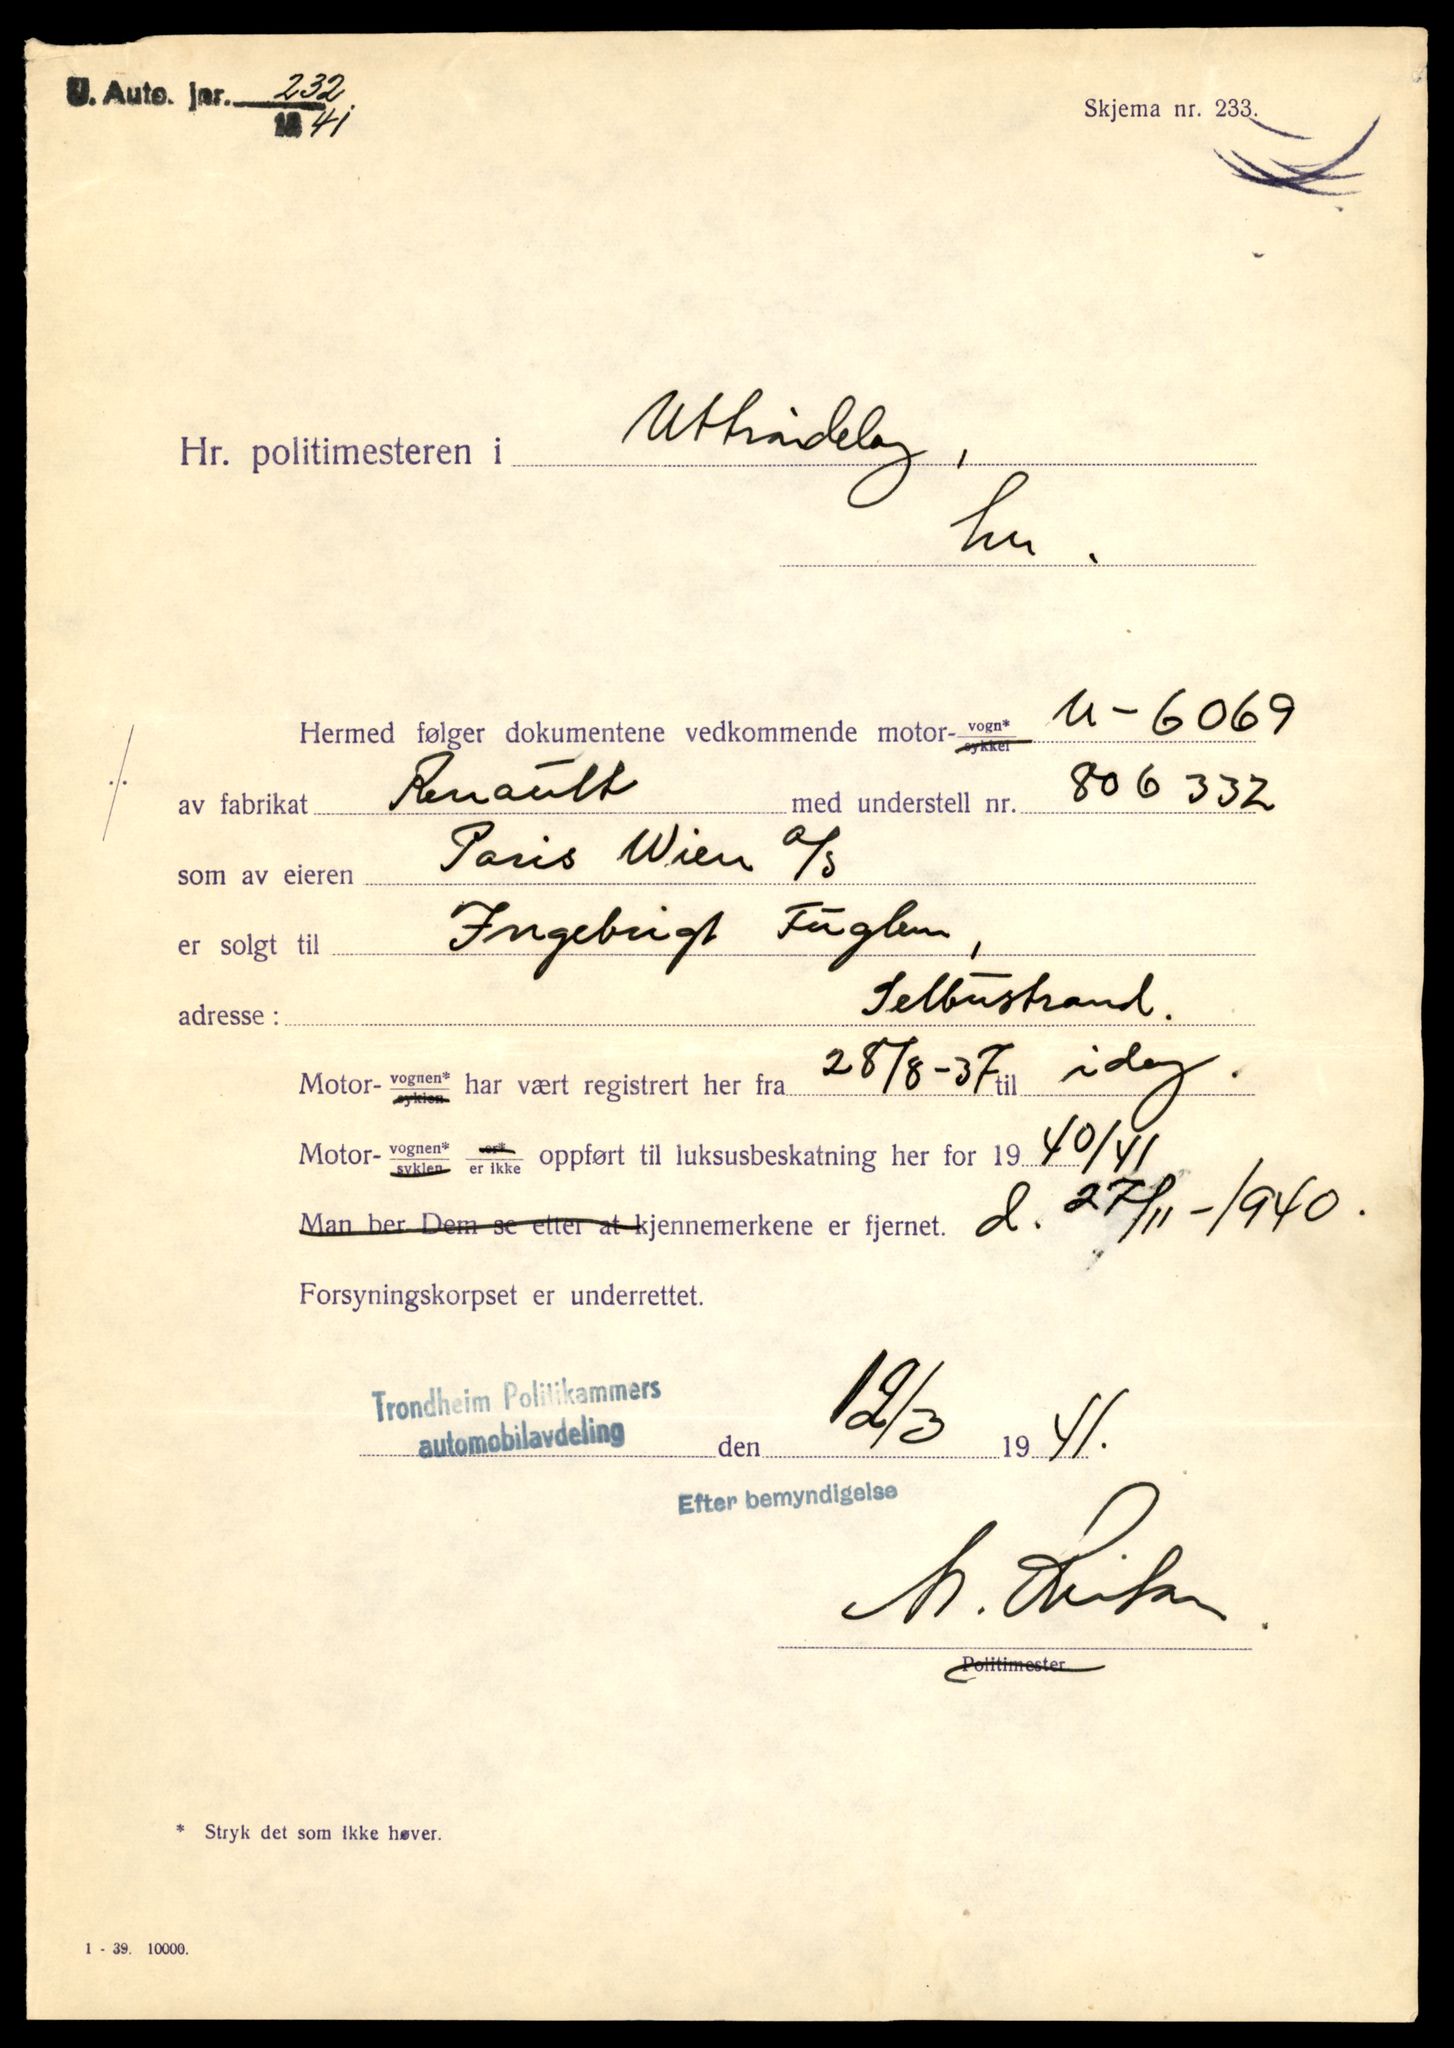 U. Auto. jnr. 232
1941
Skjema nr. 233.
Hr. politimesteren i Uttrøndelag,
her.
Hermed følger dokumentene vedkommende motor- vogn* sykkel U-6069
av fabrikat Renault med understell nr. 806332
som av eieren Paris Wien a/s
er solgt til Ingebrigt Fuglem,
adresse: Selbustrand.
Motor- vognen* syklen har vært registrert her fra 28/8-37 til idag.
Motor- vognen* syklen er* er ikke oppført til luksusbeskatning her for 19 40/41
Man ber Dem se etter at kjennemerkene er fjernet. d. 27/11-1940.
Forsyningskorpset er underrettet.
Trondheim Politikammers
automobilavdeling den 12/3 19 41.
Efter bemyndigelse
Politimester
* Stryk det som ikke høver.
1 - 39. 10000.